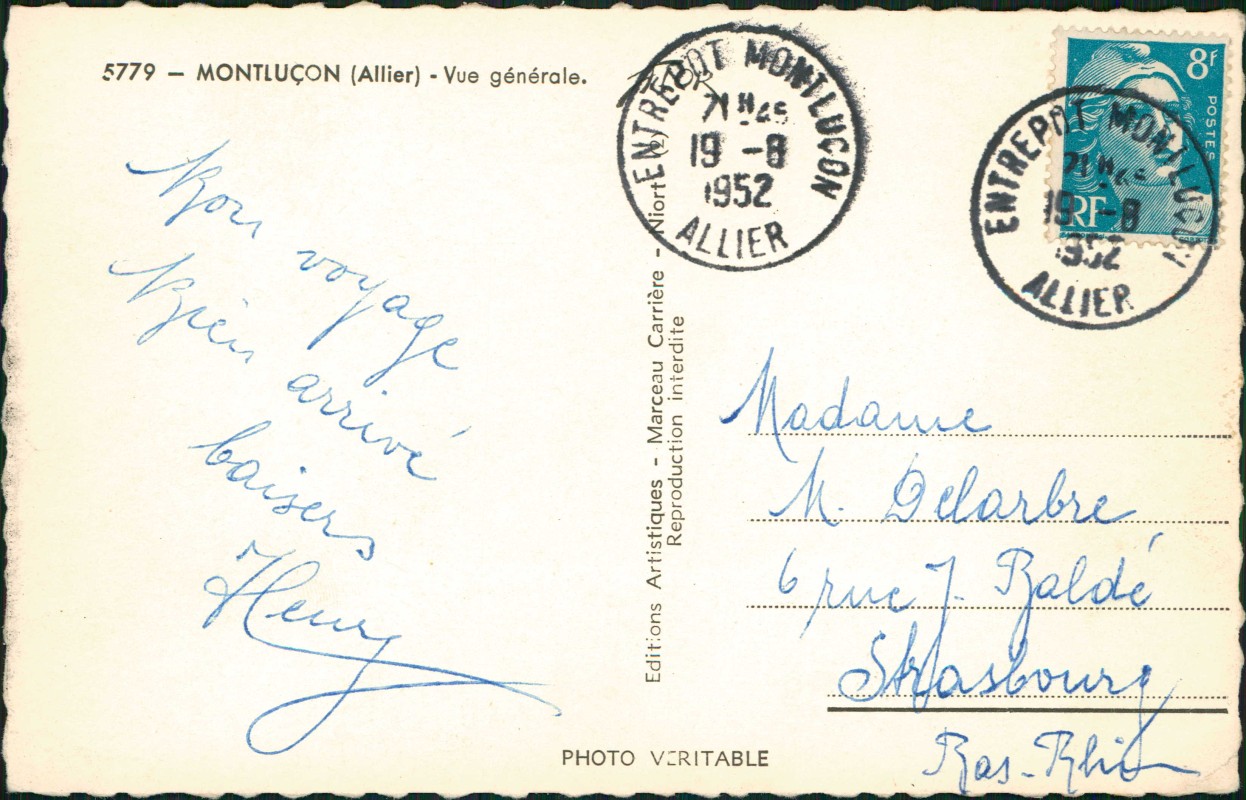 5779 — MONTLUÇON (Allier) - Vue générale.
Bon voyage
Bien arrivé
baisers
Henry
Editions Artistiques - Marceau Carrière - Niort
Reproduction interdite
PHOTO VERITABLE
ENTREPOT MONTLUCON
21H45
19 -8
1952
ALLIER
8f
POSTES
RF
ENTREPOT MONTLUCON
21H45
19 -8
1952
ALLIER
Madame
M. Delarbre
6 rue J. Baldé
Strasbourg
Bas-Rhin